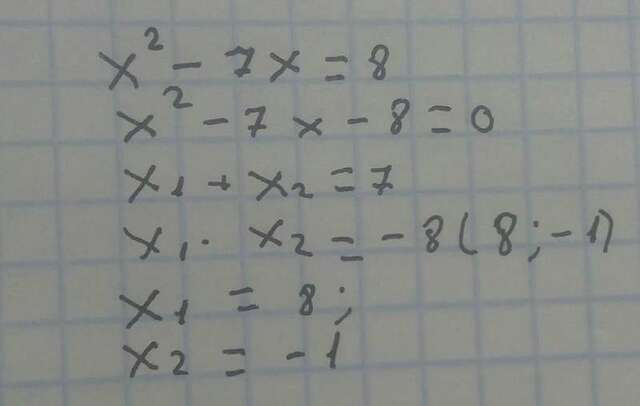 x² - 7x = 8
x² - 7x - 8 = 0
x₁ + x₂ = 7
x₁ · x₂ = -8 (8; -1)
x₁ = 8;
x₂ = -1